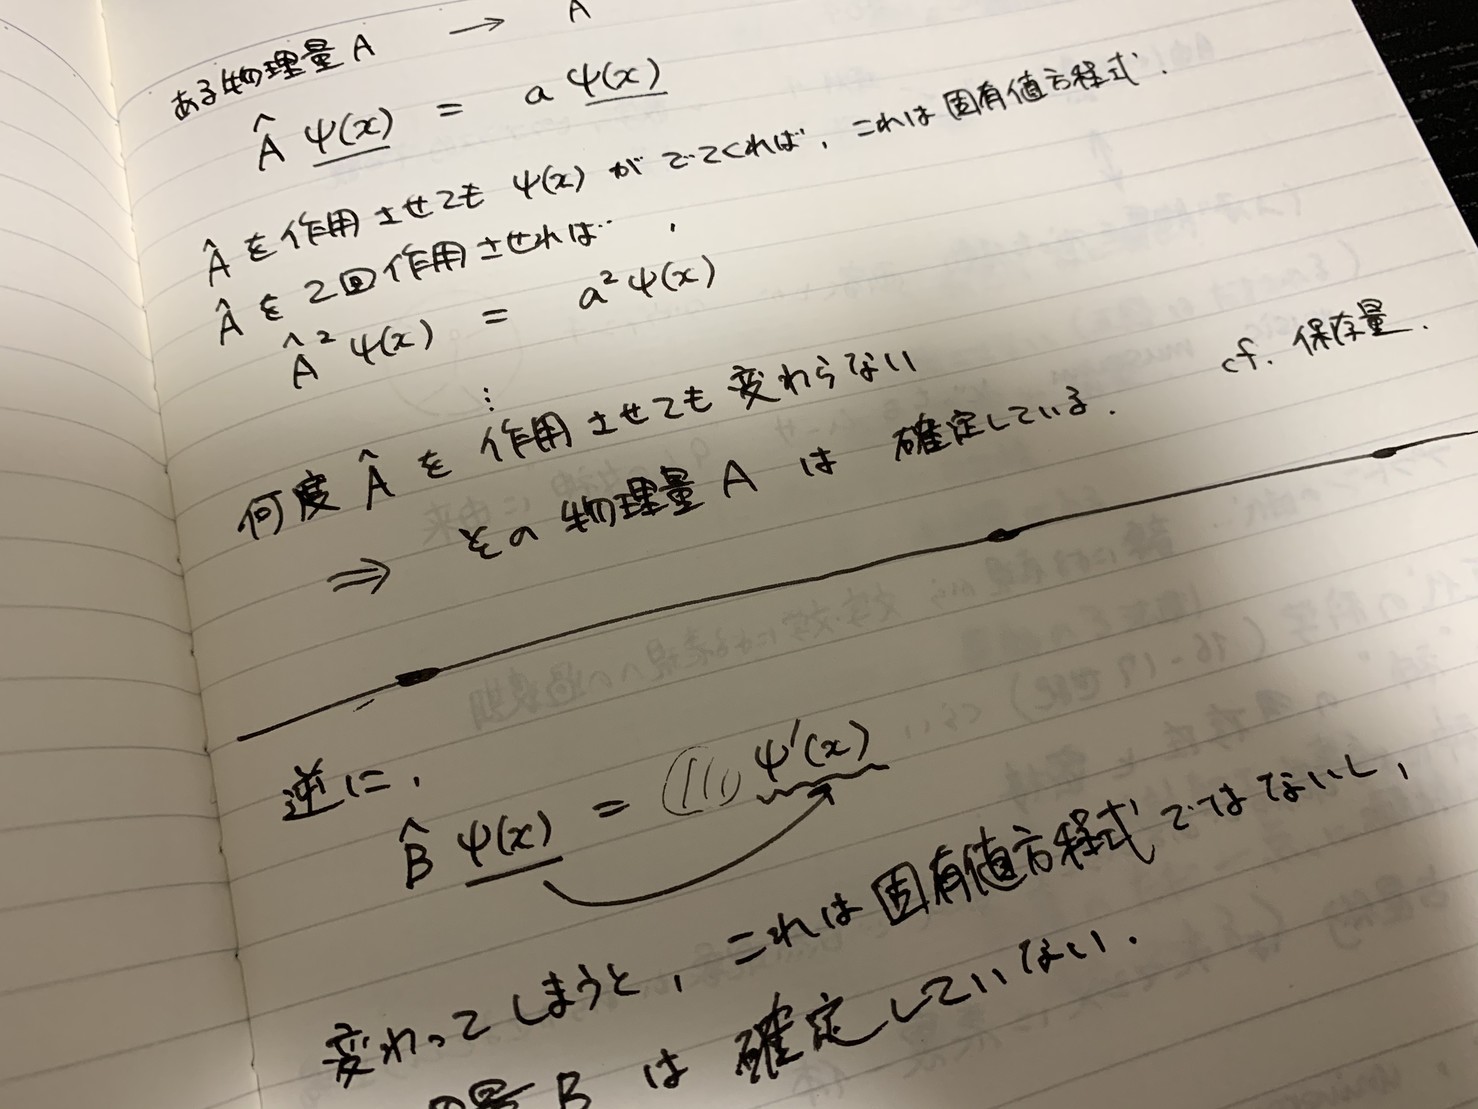 ある物理量 A → Â
Â ψ(x) = a ψ(x)
Â を作用させても ψ(x) がでてくれば, これは固有値方程式.
Â を 2回作用させれば…
Â² ψ(x) = a² ψ(x)
⋮
何度 Â を作用させても変わらない
⇒ その物理量 A は 確定している. cf. 保存量.
逆に,
B̂ ψ(x) = ψ'(x)
変わってしまうと, これは固有値方程式ではないし,
量 B は 確定していない.